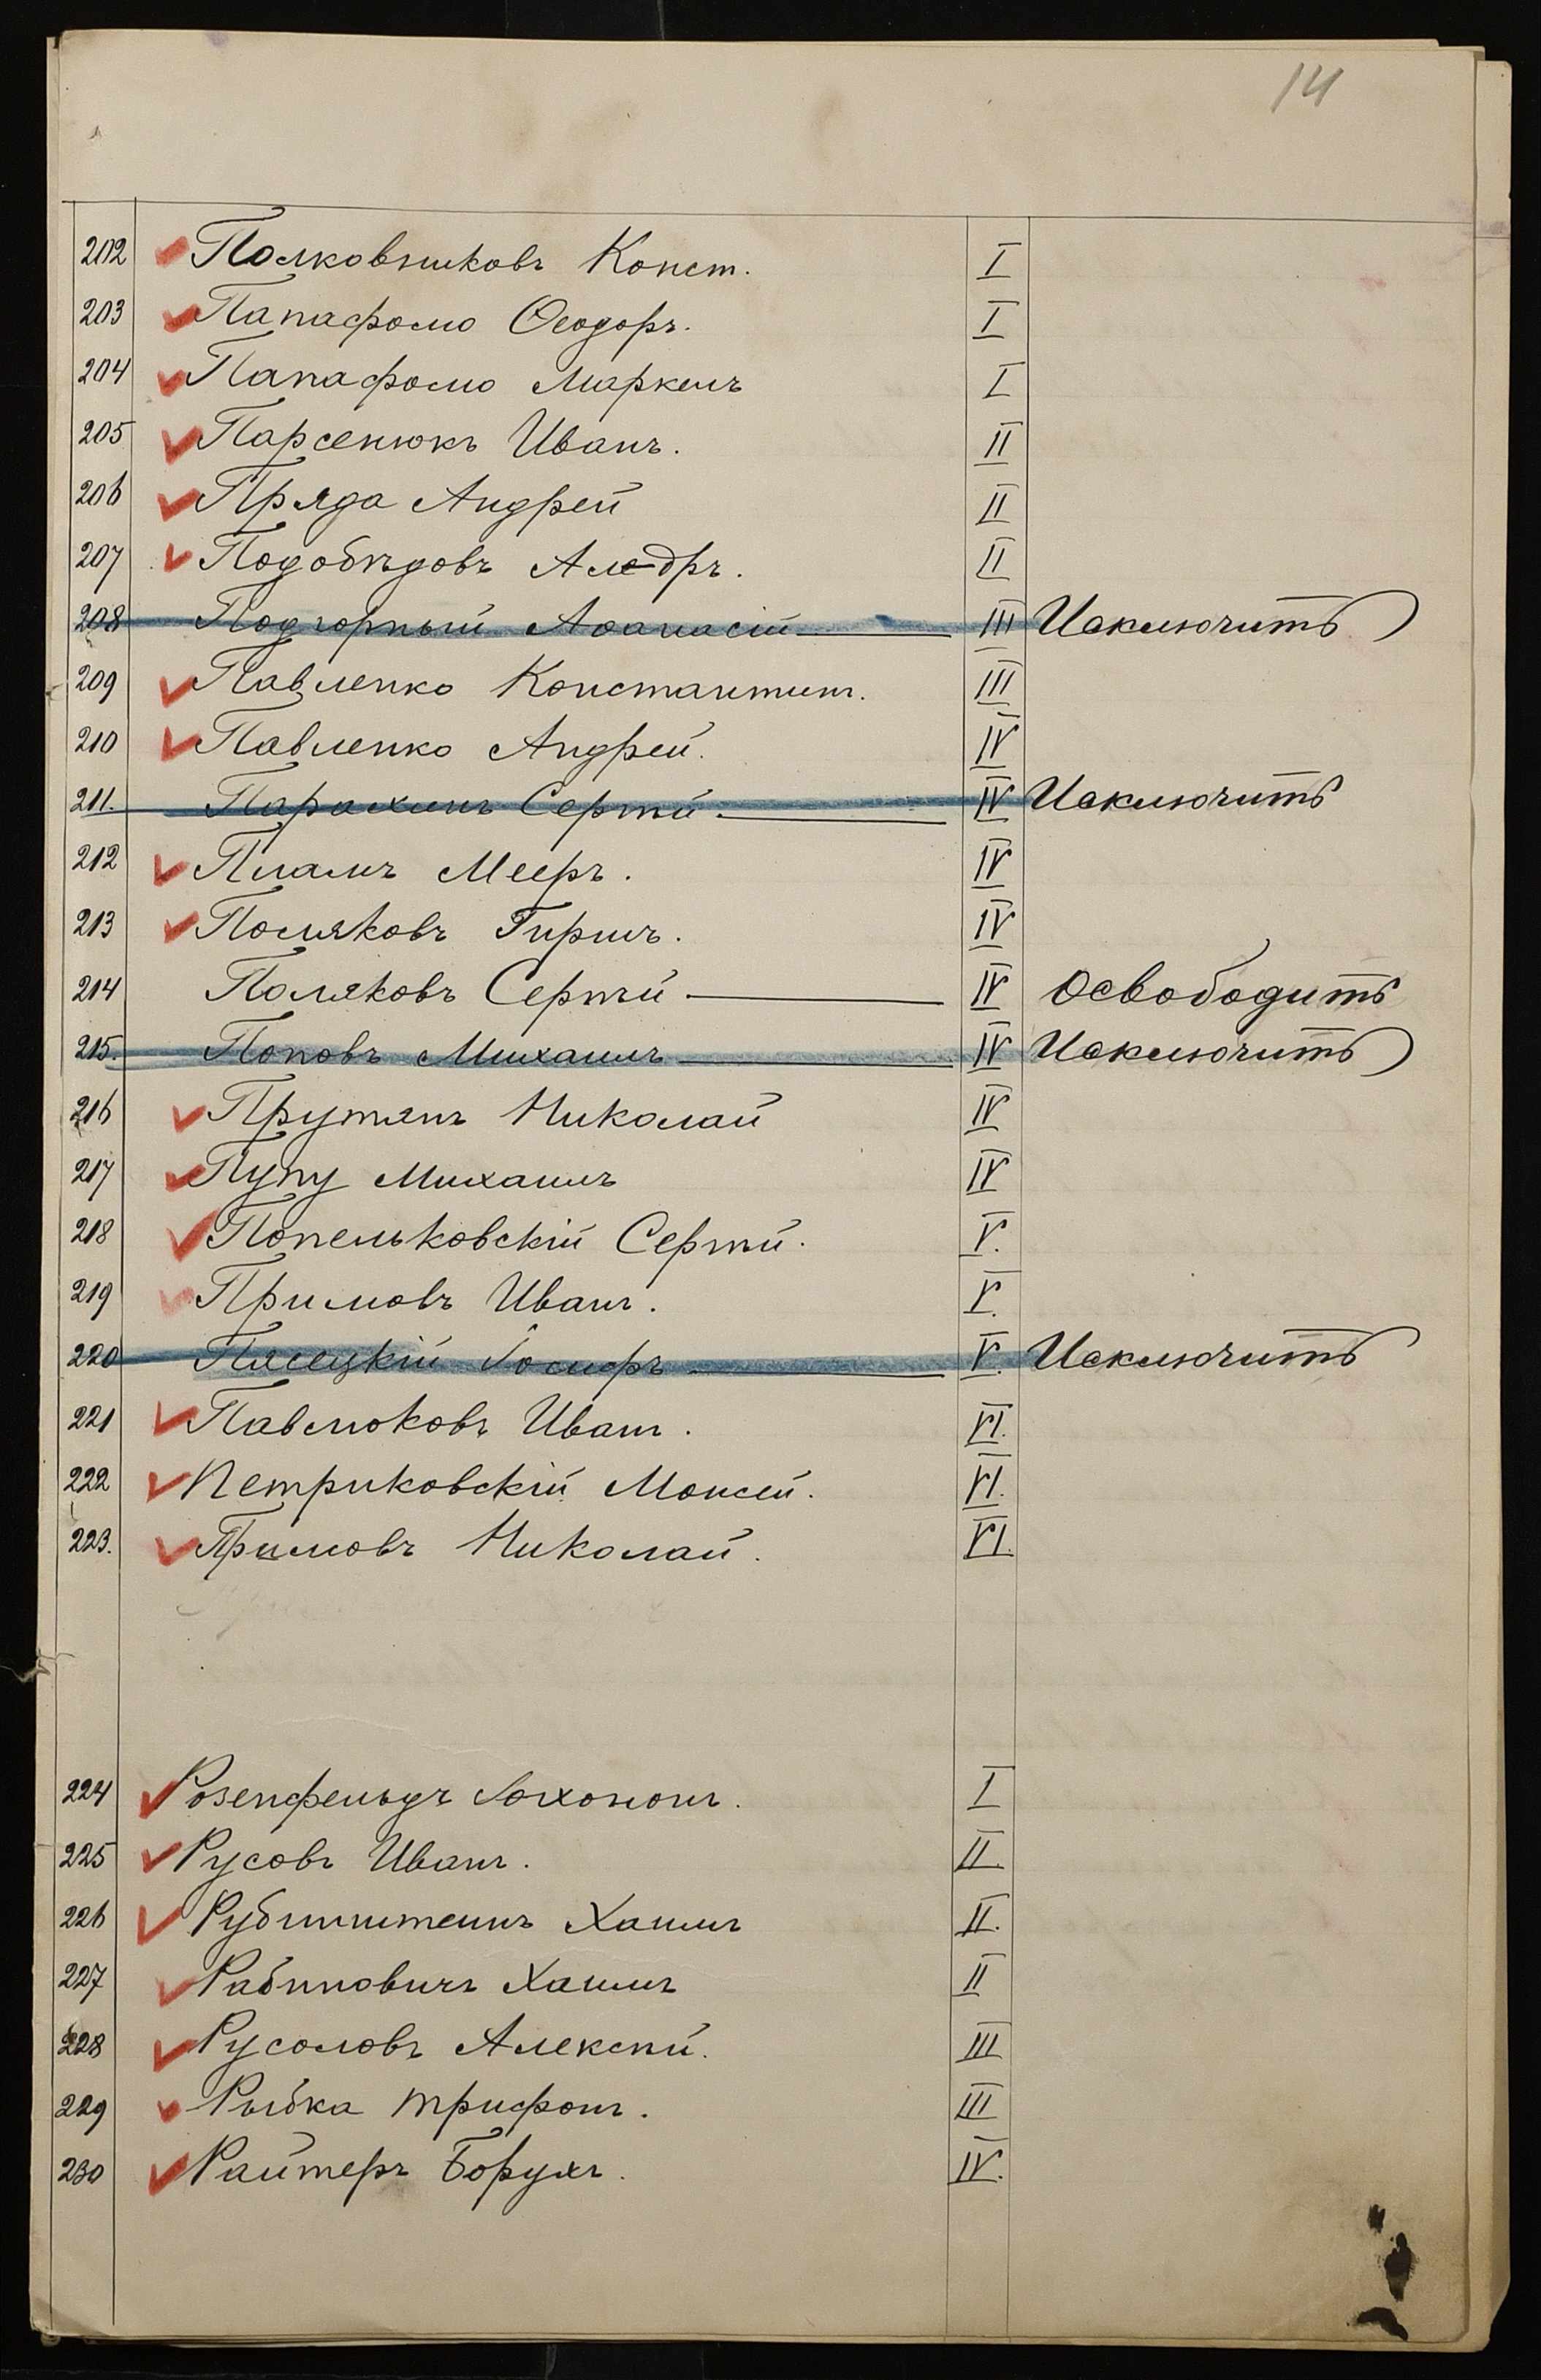 14
202 Полковниковъ Конст. I
203 Папафомо Ѳеодоръ. I
204 Папафомо Маркелъ I
205 Парсенюкъ Иванъ. II
206 Пряда Андрей II
207 Подобѣдовъ Ал-дръ. II
208 Подгорный Аѳанасій III Исключить
209 Павленко Константинъ. III
210 Павленко Андрей. IV
211. Парахинъ Сергѣй. IV Исключить
212 Пламъ Мееръ. IV
213 Поляковъ Гиршъ. IV
214 Поляковъ Сергѣй IV Освободить
215. Поповъ Михаилъ IV Исключить
216 Прутянъ Николай IV
217 Пупу Михаилъ IV
218 Попельковскій Сергѣй. V.
219 Примовъ Иванъ. V.
220 Пясецкій Іосифъ V. Исключить
221 Павлюковъ Иванъ. VI.
222 Петриковскій Моисей. VI.
223. Примовъ Николай. VI.
224 Розенфельдъ Іохононъ. I
225 Русовъ Иванъ. II
226 Рубинштейнъ Хаимъ II.
227 Рабиновичъ Хаимъ II
228 Русоловъ Алексѣй. III
229 Рыбка Трифонъ. III
230 Райтеръ Борухъ. IV.